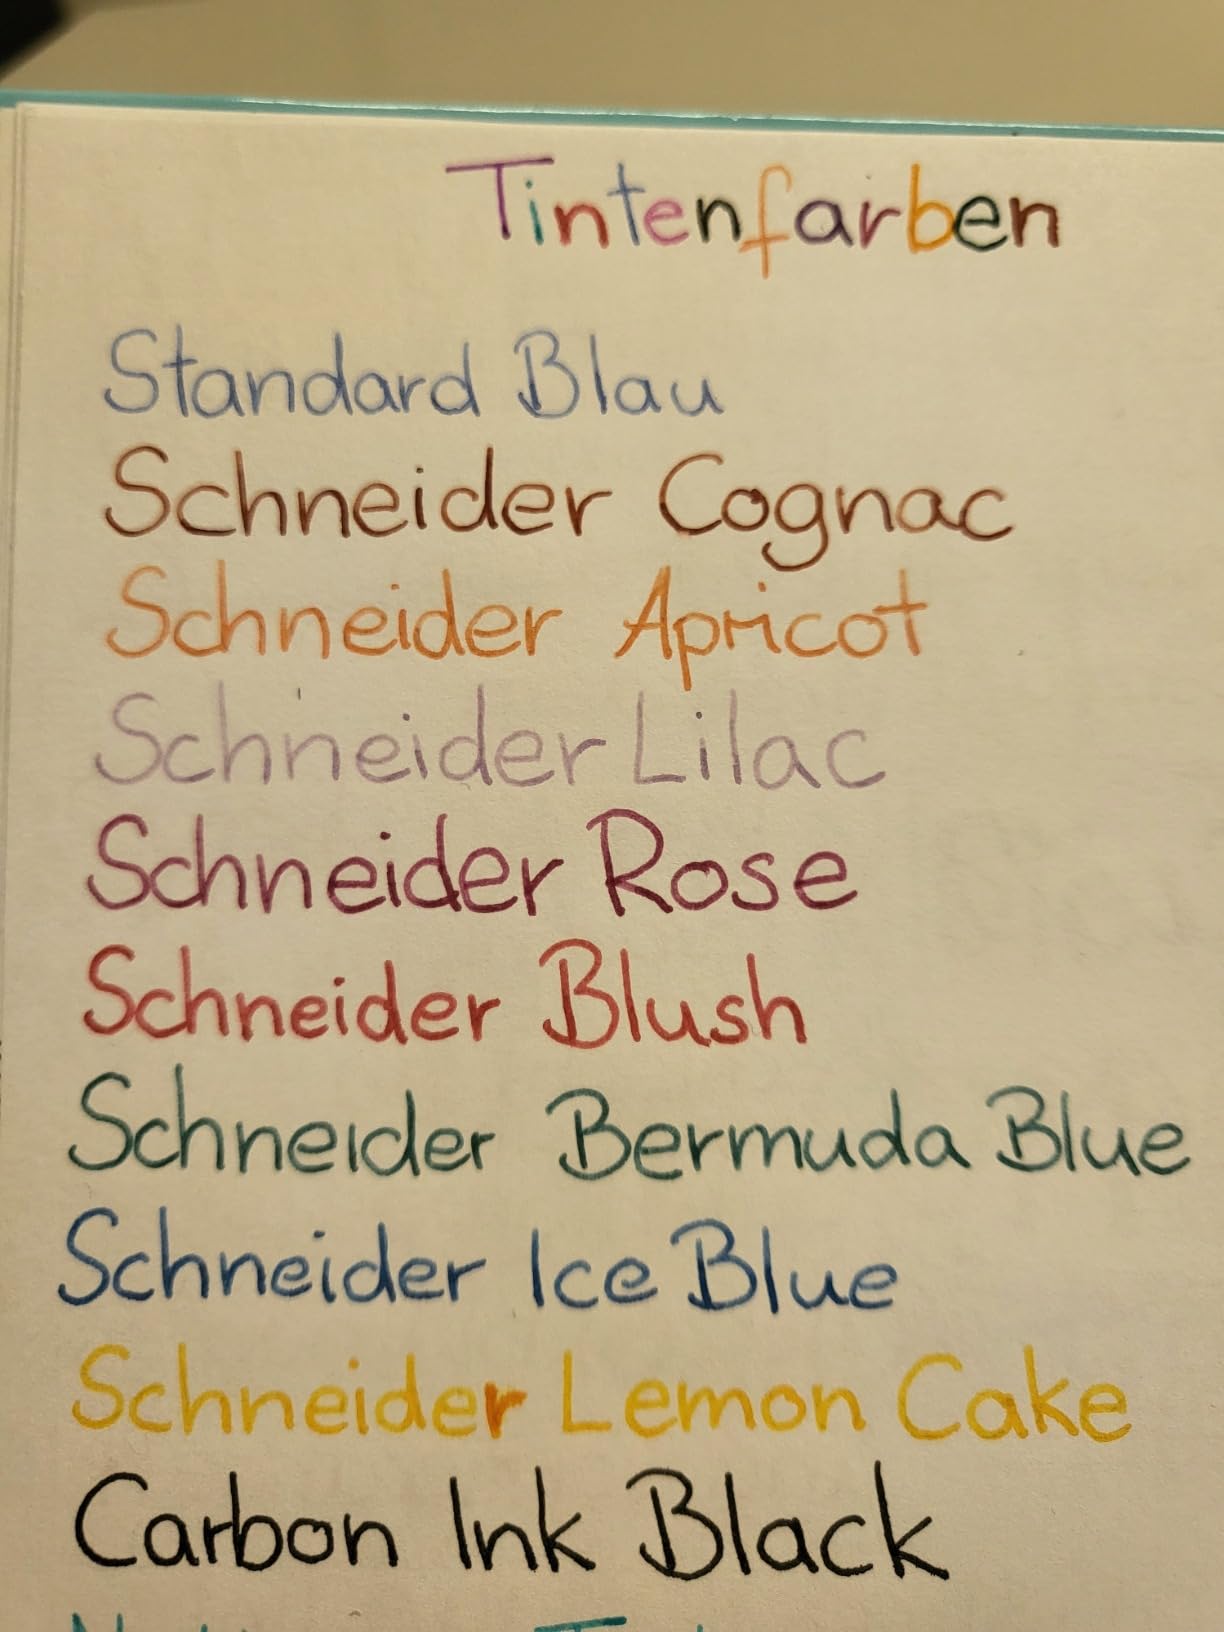 Tintenfarben
Standard Blau
Schneider Cognac
Schneider Apricot
Schneider Lilac
Schneider Rose
Schneider Blush
Schneider Bermuda Blue
Schneider Ice Blue
Schneider Lemon Cake
Carbon Ink Black